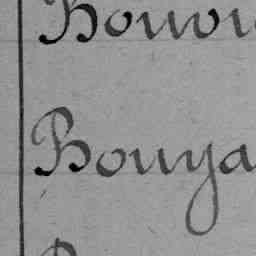 Bouvi
Bouya